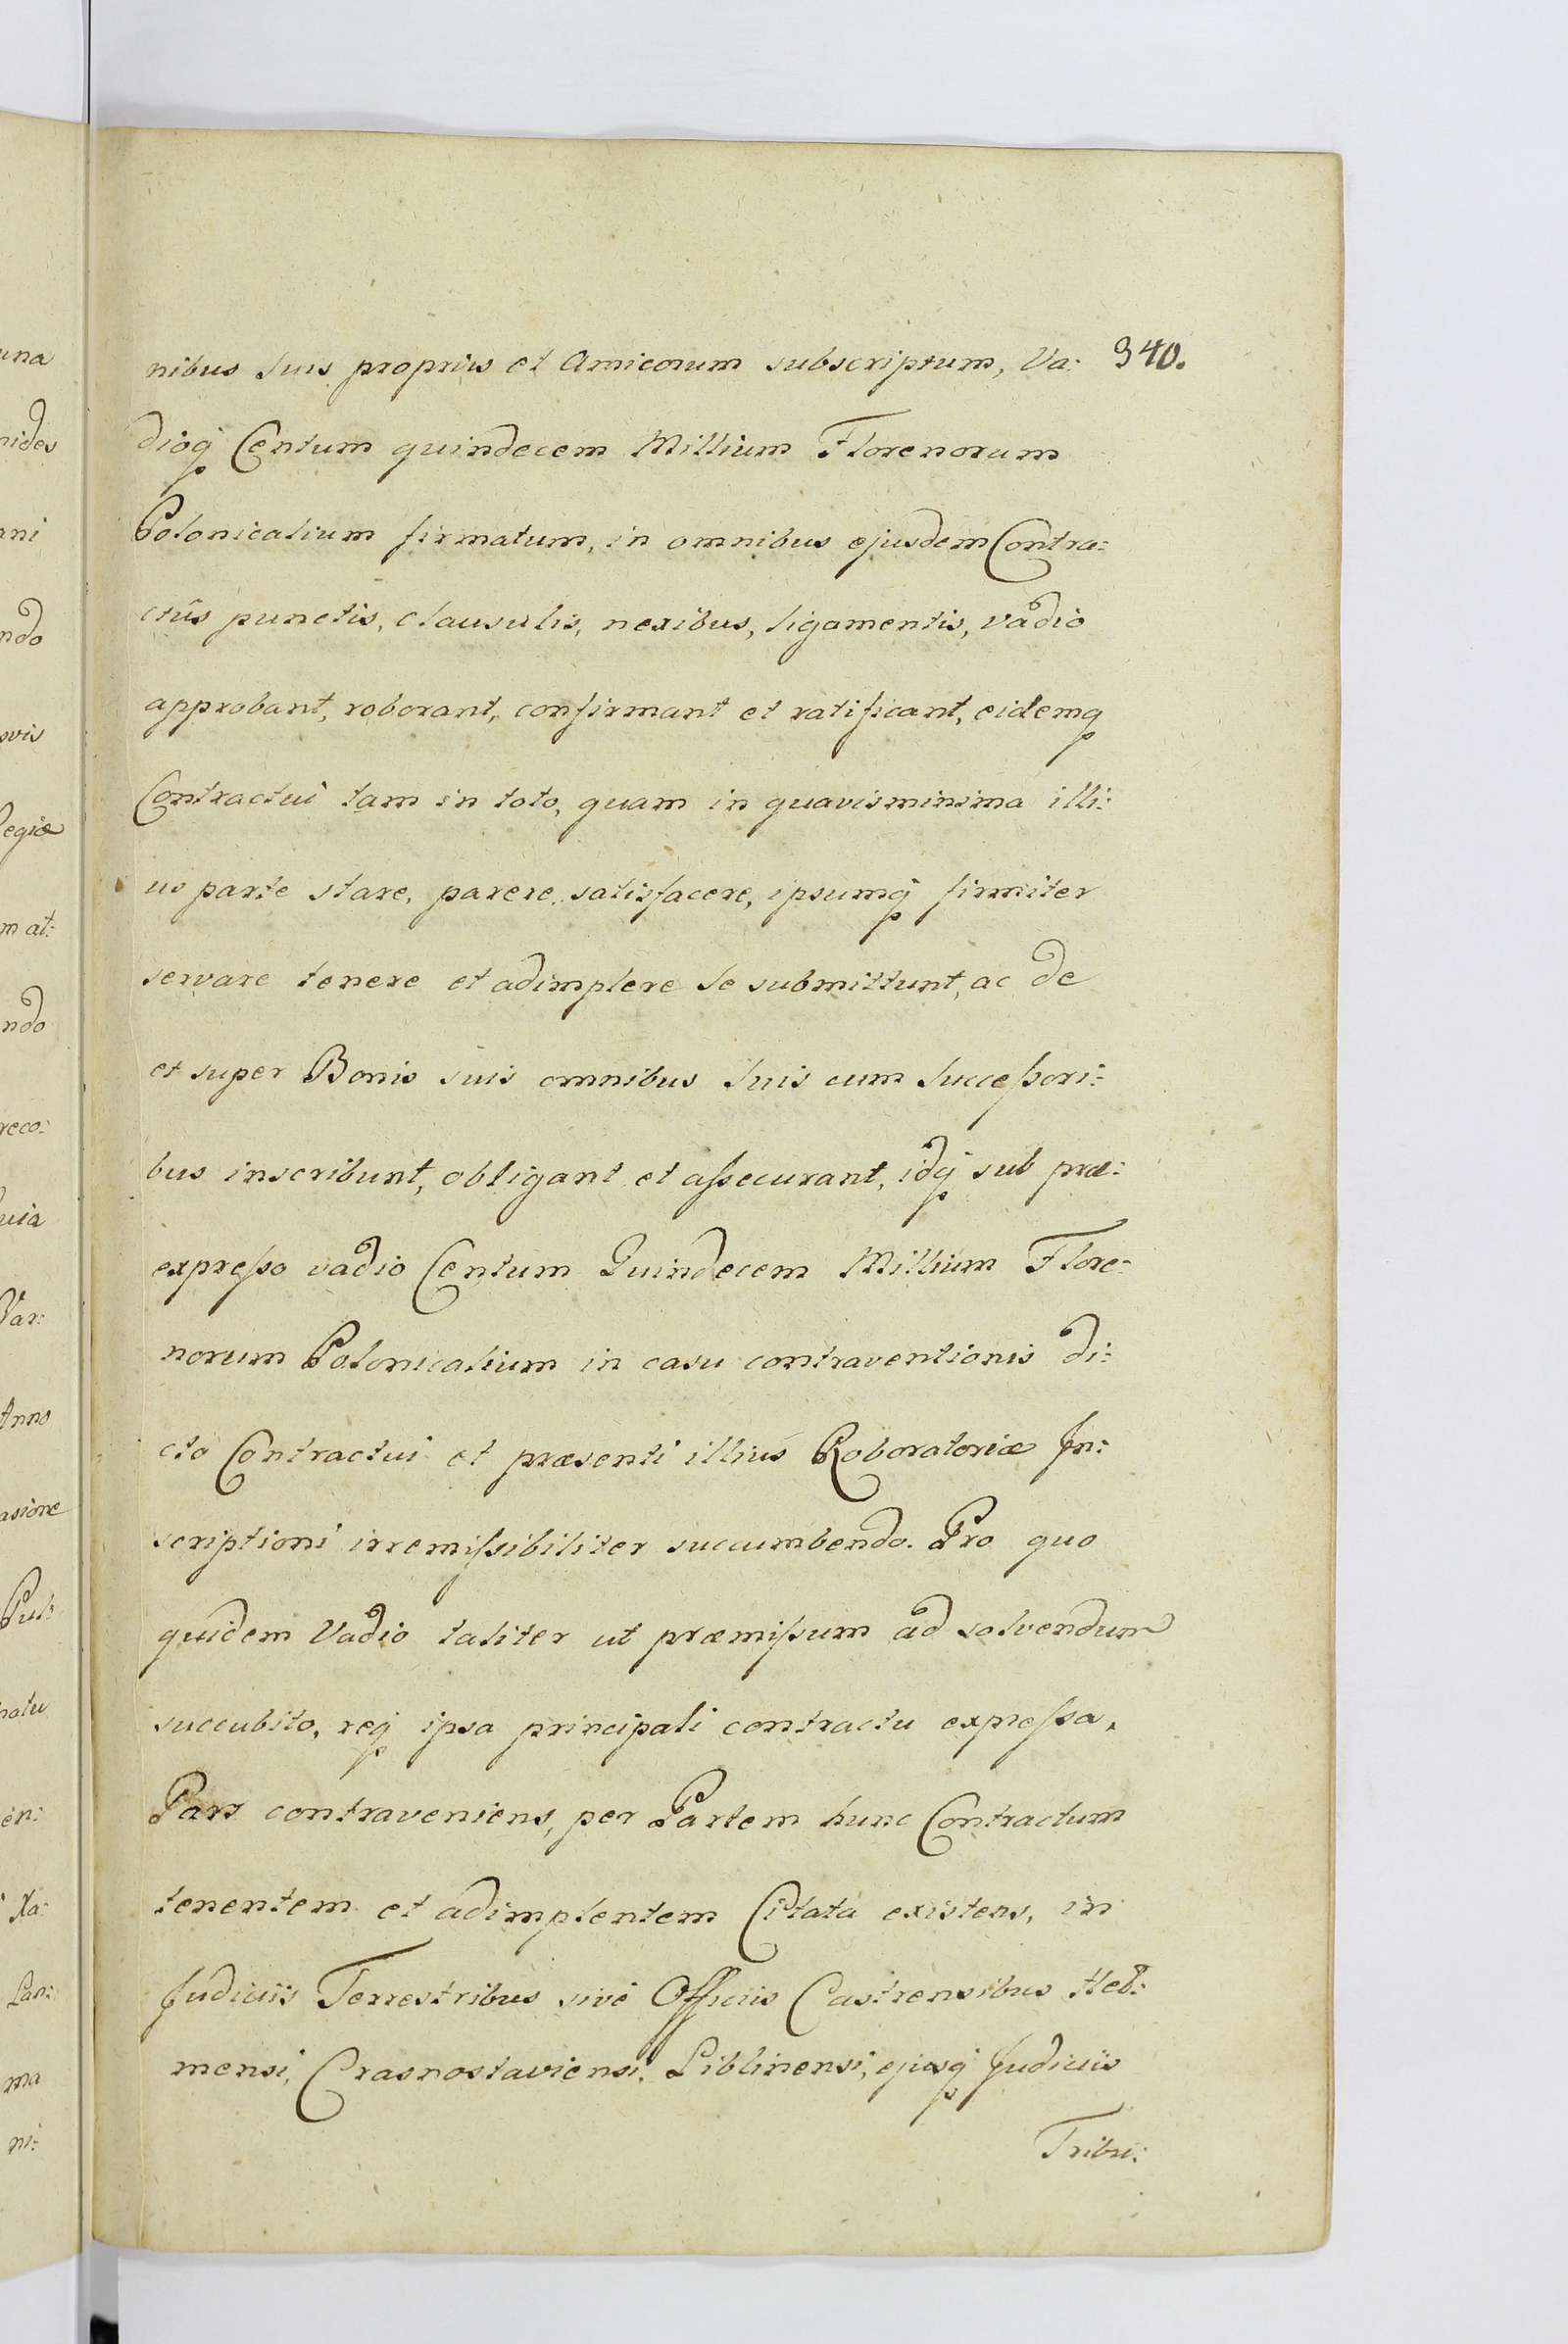 nibus suis propriis et Amicorum subscriptum, Va: 340.
dioq̃ Centum quindecem Millium Florenorum
Polonicalium firmatum, in omnibus ejusdem Contra:
ctûs punctis, clausulis, nexibus, ligamentis, vadio
approbant, roborant, confirmant et ratificant, eidemq
Contractui tam in toto, quam in quavis minima illi:
us parte stare, parere, satisfacere, ipsumq̃ firmiter
servare tenere et adimplere se submittunt, ac de
et super Bonis suis omnibus suis cum Succeßori:
bus inscribunt, obligant et aßecurant, idq̃ sub præ:
expreßo vadio Centum Quindecem Millium Flore:
norum Polonicalium in casu contraventionis di:
cto Contractui et præsenti illius Roboratoriæ In:
scriptioni irremißibiliter succumbendo. Pro quo
quidem Vadio taliter ut præmißum ad solvendum
succubito, req̃ ipsa principali contractu expreßa,
Pars contraveniens, per Partem hunc Contractum
tenentem et adimplentem Citata existens, in
Judiciis Terrestribus sive Officiis Castrensibus Hel:
mensi, Crasnostaviensi, Liblinensi, ejusq̃ Judiciis
Tribu:
una
nides
ani
ndo
ovis
Regiæ
m at:
ndo
reco:
uia
Var:
Anno
asione
Pul:
natu
en:
Xa:
Lan:
ma
ni: